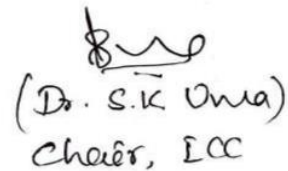 (Dr. S.K Uma)
Chair, ICC